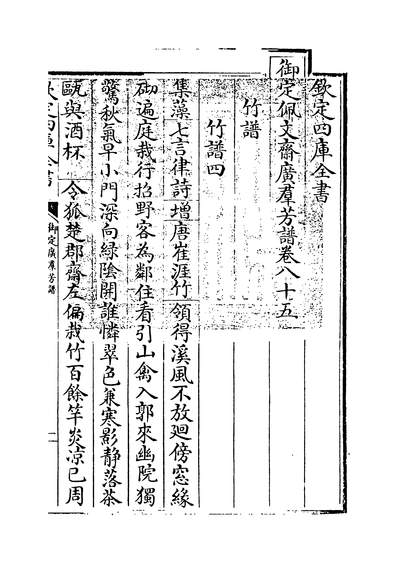 欽定四庫全書
御定佩文齋廣羣芳譜卷八十五
竹譜
竹譜四
集藻七言律詩增唐崔涯竹領得溪風不放廻傍窓緣
砌遍庭栽行招野客為鄰住看引山禽入郭來幽院獨
驚秋氣早小門深向綠陰開誰憐翠色兼寒影静落茶
甌與酒杯 令狐楚郡齋左偏栽竹百餘竿炎凉已周
欽定四庫全書
御定廣羣芳譜
一